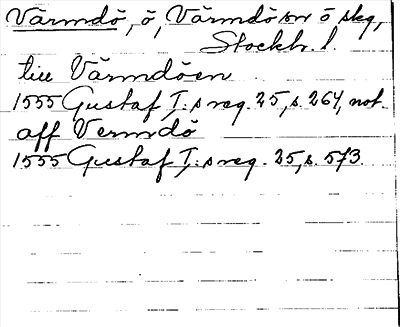 Värmdö, ö, Värmdö sn o skg,
Stockh. l.
till Värmdöen
1555 Gustaf I:s reg. 25, s. 264, not.
aff Vermdö
1555 Gustaf I:s reg. 25, s. 573